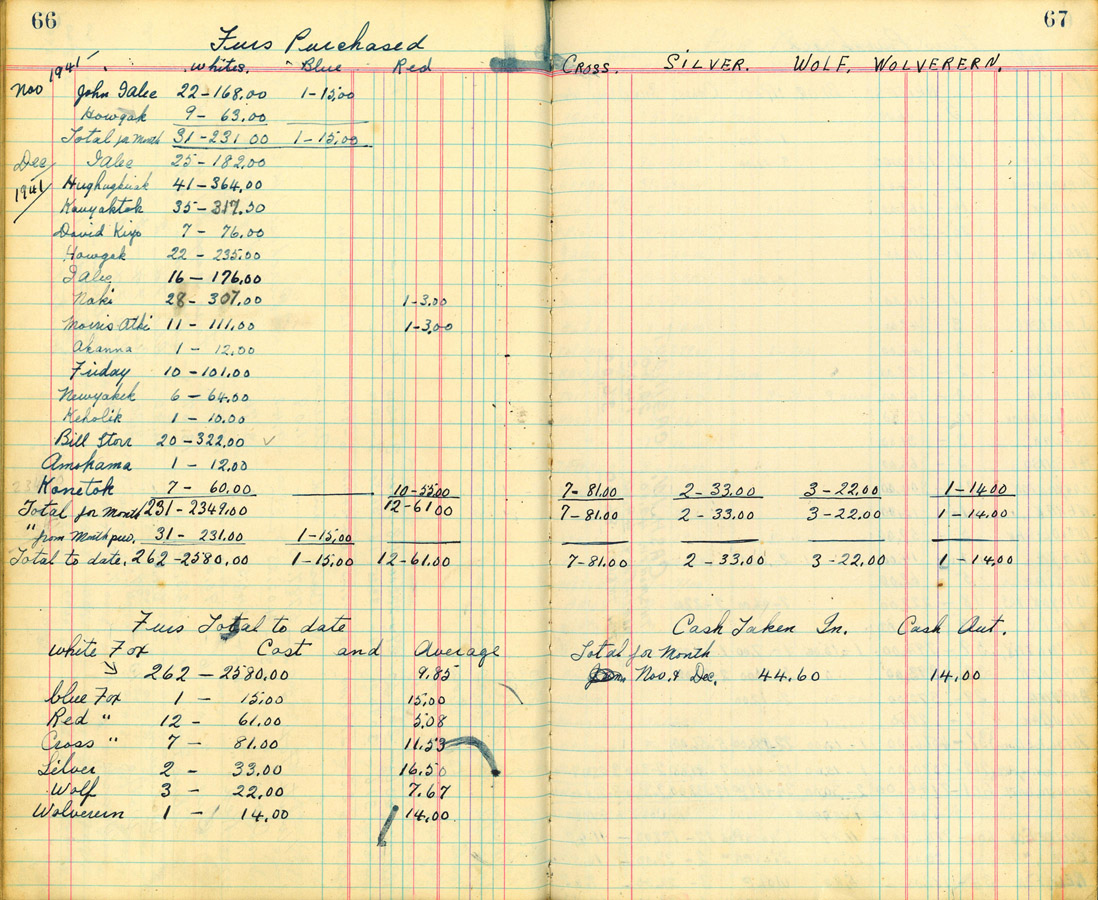 66
67
Furs Purchased
1941 whites. Blue Red CROSS. SILVER. WOLF. WOLVERERN.
Nov John Igalee 22-168.00 1-15.00
Howgak 9- 63.00
Total for Month 31-231 00 1-15.00
Dec Igalee 25-182.00
1941 41-364.00
Kouyaktok 35-317.50
David Kiyo 7- 76.00
Howgak 22 - 235.00
Igalee 16 - 176.00
Naki 28- 307.00 1-3.00
Morris Atki 11 - 111.00 1-3.00
Akanna 1 - 12.00
Friday 10-101.00
Newyakek 6-64.00
Keholik 1 - 10.00
Bill Storr 20-322.00 ✓
Amokama 1 - 12.00
Konetok 7- 60.00 10-55.00 7-81.00 2-33.00 3-22.00 1-14.00
Total for Month 231-2349.00 12-61.00 7-81.00 2-33.00 3-22.00 1-14.00
" from Month prev. 31- 231.00 1-15.00
Total to date. 262-2580.00 1-15.00 12-61.00 7-81.00 2-33.00 3-22.00 1-14.00
Furs Total to date
white Fox Cost and Average
262-2580.00 9.85
blue Fox 1 - 15.00 15.00
Red " 12 - 61.00 5.08
Cross " 7 - 81.00 11.53
Silver 2 - 33.00 16.50
Wolf 3 - 22.00 7.67
Wolverern 1 - 14.00 14.00
Cash Taken In. Cash Out.
Total for Month
Nov. & Dec. 44.60 14.00